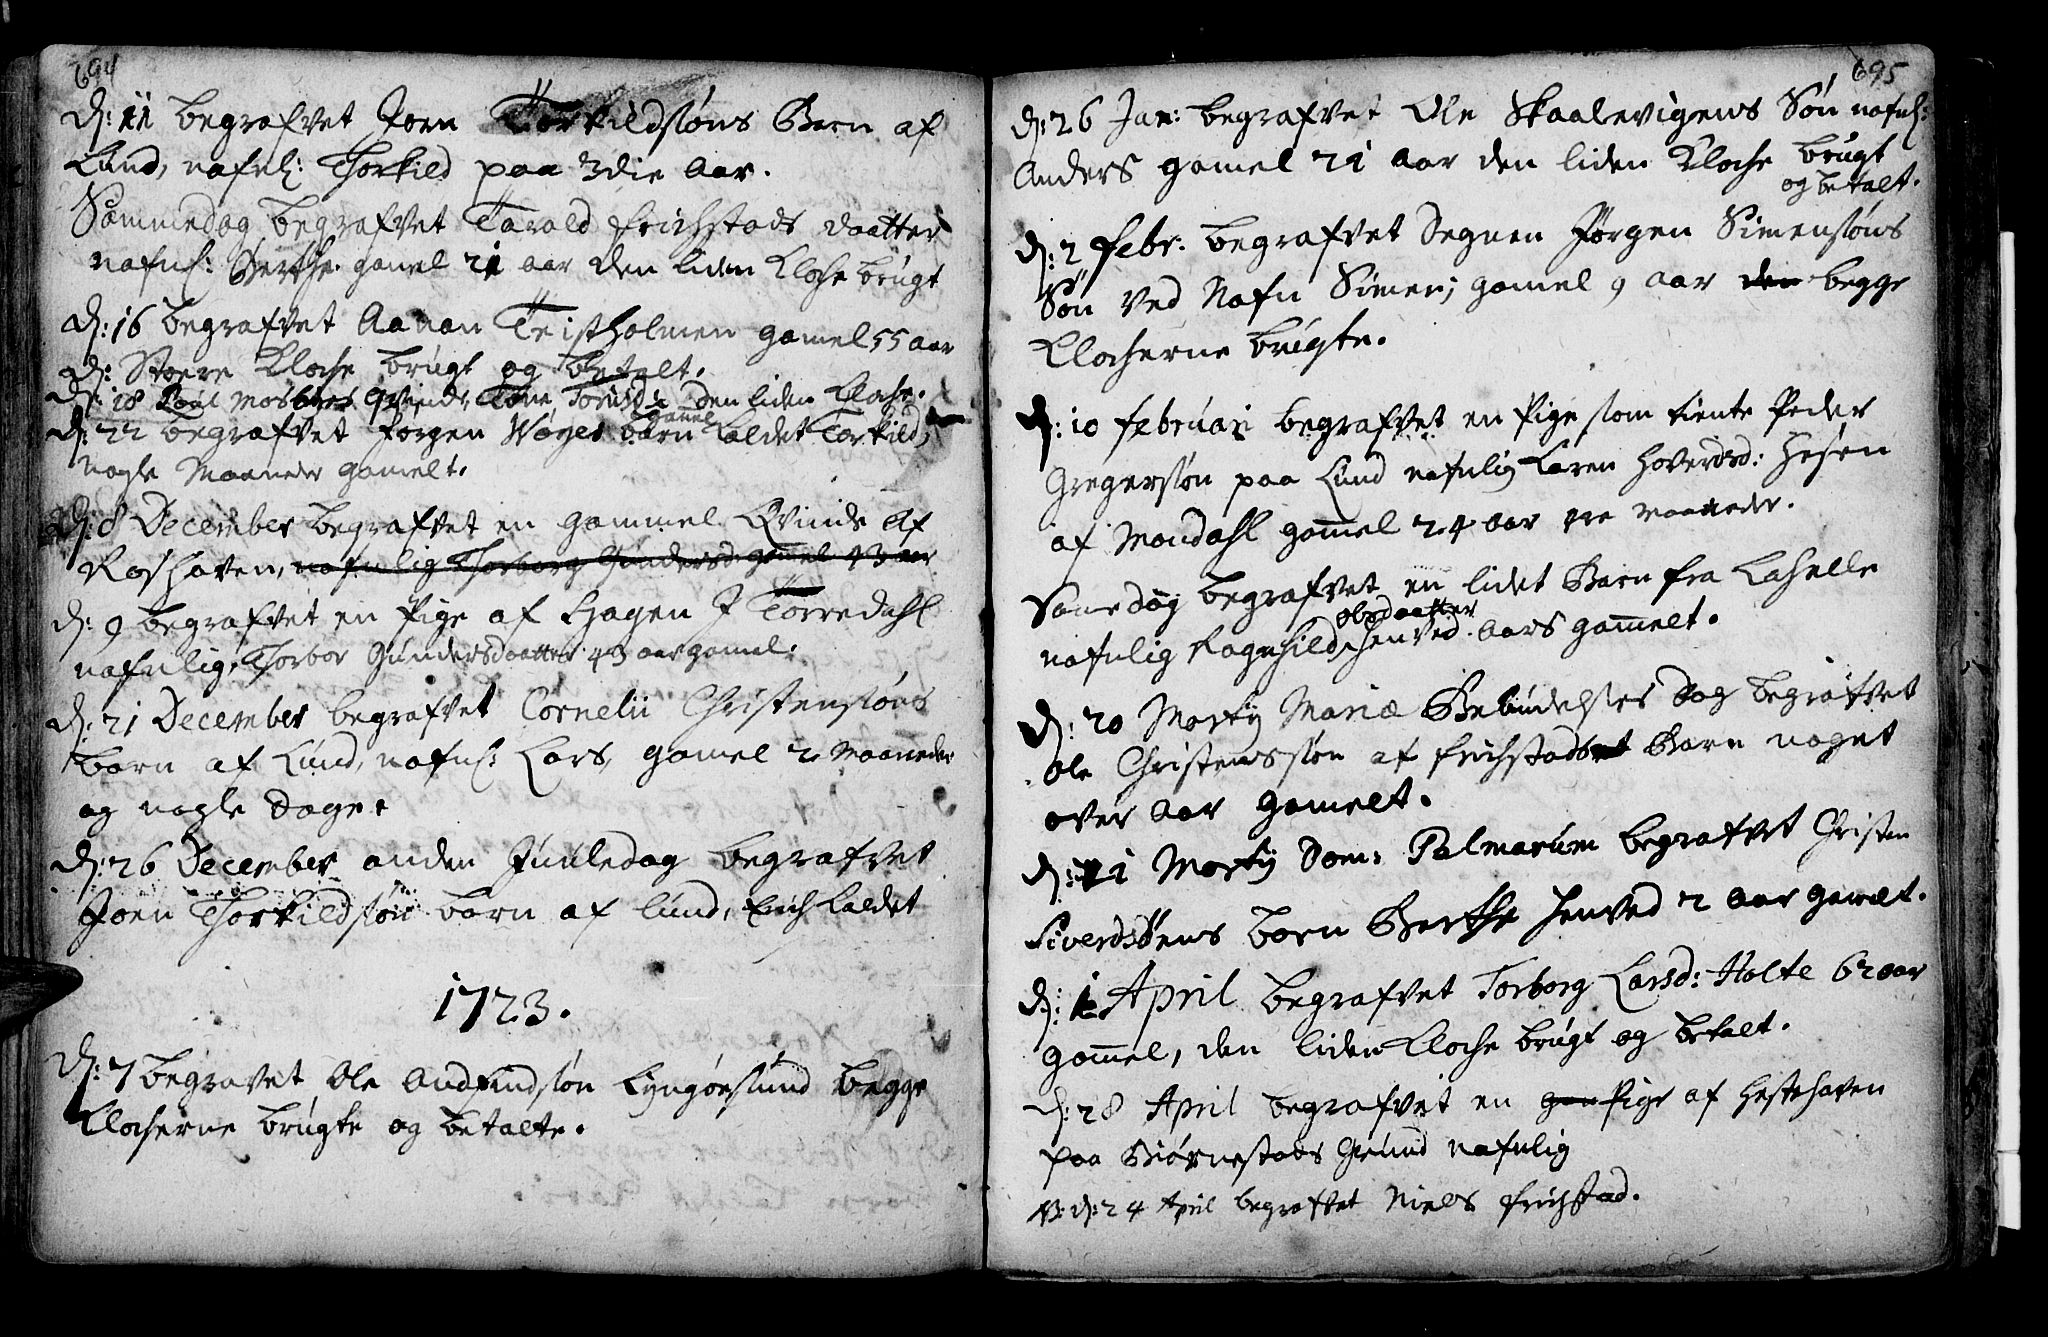 694
d: 11 begrafvet Joen Torkildsøns Barn af
Lund, nafnl: Thorkild paa 3die Aar.
Sammedag begrafvet Tarald Erichstads daatter
nafnl: Berthe gamel 21 aar den liden Kloche brugt
d: 16 begrafvet Aanon Teistholmen gamel 55 aar
d: Stoere Kloche brugt og betalt.
d: 18 Poul Mosbøes Qvinde, Tone Tonisd: den liden Kloche.
d: 22 begrafvet Jørgen Wøyes barn kaldet Torkild,
nogle Maaneder gamelt.
d: 8 December begrafvet en gammel Qvinde af
Roshaven, nafnlig Thorborg Gundersd: gamel 43 aar
d: 9 begrafvet en Pige af Hagen I Torredahl
nafnlig, Thorbor Gundersdaatter 43 aar gamel.
d: 21 December begrafvet Cornelii Christensøns
barn af Lund, nafnl: Lars, gamel 2 Maaneder
og nogle Dage.
d: 26 December anden Juuledag begrafvet
Joen Thorkildsøn barn af lund, Erich kaldet
1723.
d: 7 begravet Ole Andfindsøn Lyngørsund begge
Klocherne brugte og betalte.
695
d: 26 Jan: begrafvet Ole Skaalevigens Søn nafnl:
Anders gamel 21 aar den liden Kloche brugt
og betalt.
d: 2 Febr: begrafvet Degnen Jørgen Simensøns
Søn ved Nafn Simen; gamel 9 aar den begge
Klocherne brugte.
d: 10 Februari begrafvet en Pige som tiente Peder
Gregersøn paa Lund nafnlig Karen Hoverdsd:
af Mondahl gamel 24 aar maaneder.
Samedag begrafvet en lidet Barn fra
nafnlig Ragnhild Olsdaatter henved Aars gammelt.
d: 20 Martij Mariæ Bebudelses Dag begrafvet
Ole Christenssøn af Erichstads Barn noget
over Aar gamelt.
d: 21 Martij Dom: Palmarum begrafvet Christen
Siverdsøns barn Berthe henved 2 Aar gamelt.
d: 1 April begrafvet Torborg Larsd: Holte 62 aar
gammel, den liden Kloche brugt og betalt.
d: 28 April begrafvet en Pige af Hestehaven
paa Biørnestads Grund nafnlig
NB: d: 24 April begrafvet Niels Erichstad.